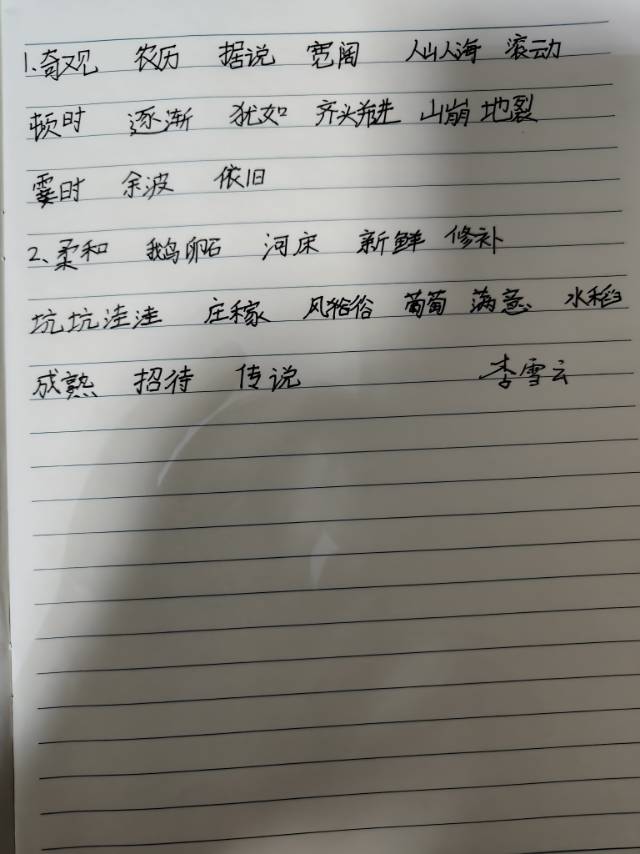 1、奇观 农历 据说 宽阔 人山人海 滚动
顿时 逐渐 犹如 齐头并进 山崩地裂
霎时 余波 依旧
2、柔和 鹅卵石 河床 新鲜 修补
坑坑洼洼 庄稼 风俗 葡萄 满意 水稻
成熟 招待 传说 李雪云